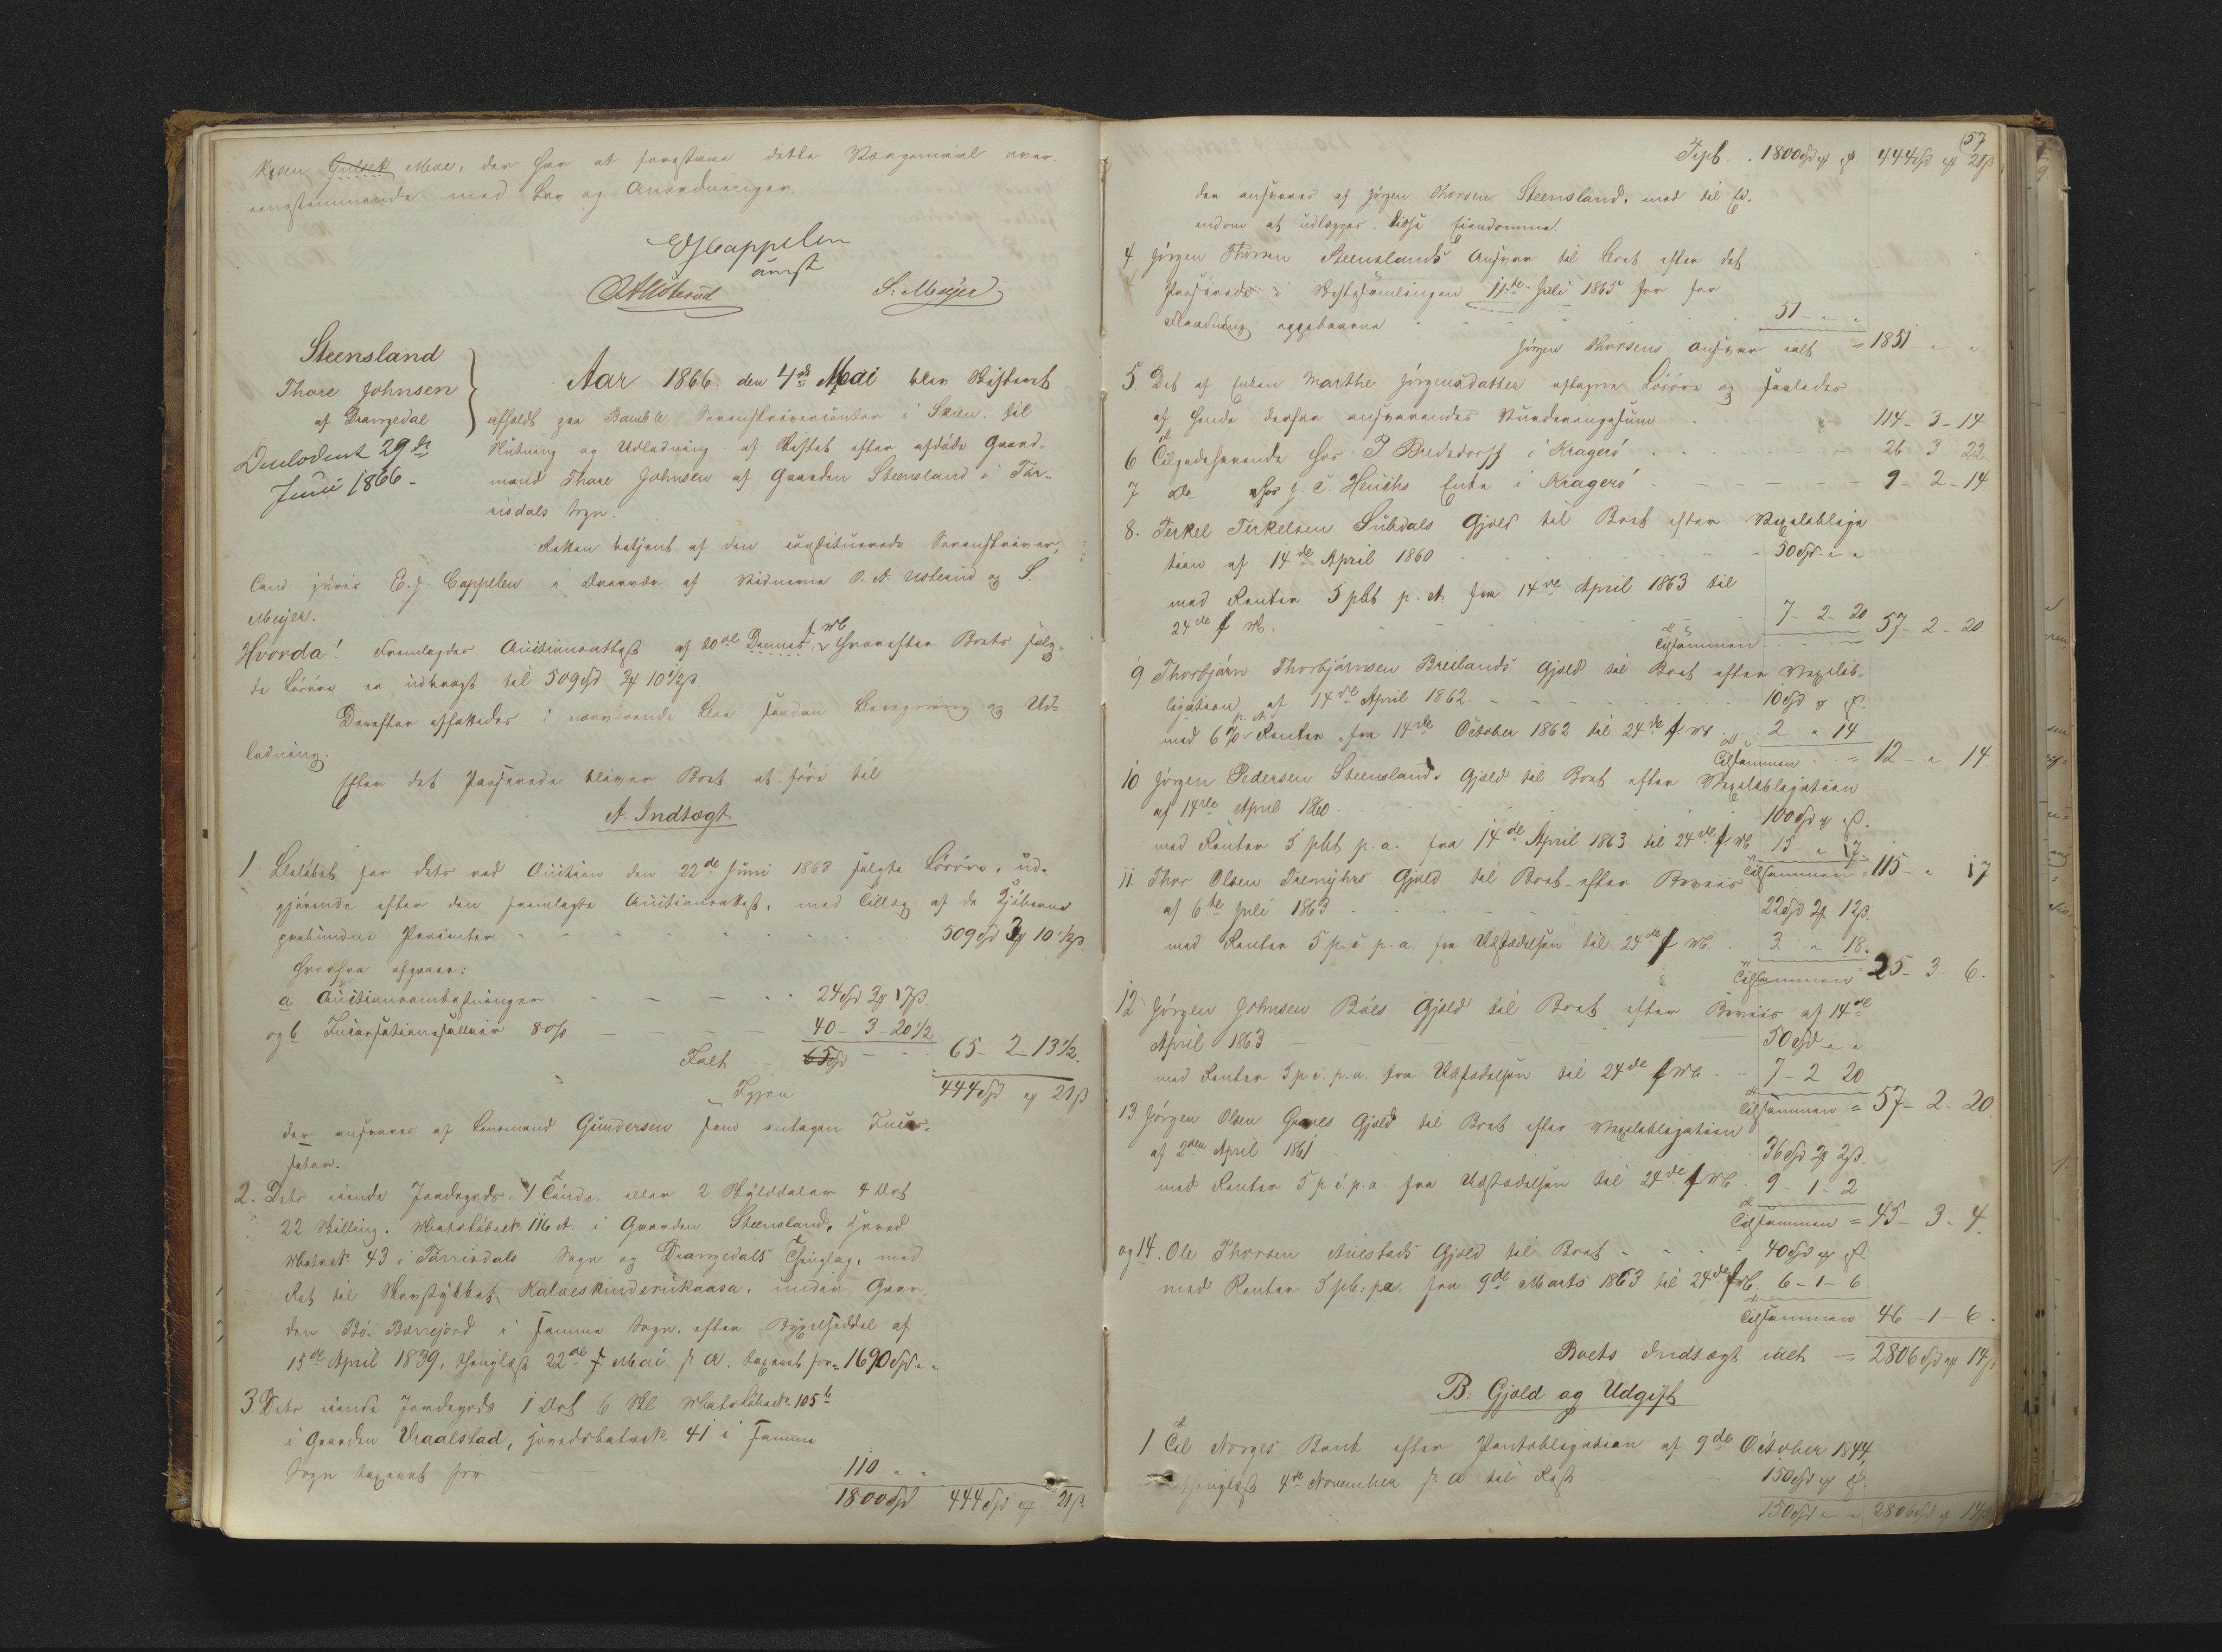 Gulsek Moe, der har at forestaae dette Værgemaal over-
eensstemmende med Lov og Anordninger.
EJCappelen
const
OAUsterud S. Meyer
Steensland
Thore Johnsen
af Drangedal
Decloderet 29de
Juni 1866 -
Aar 1866. den 4de Mai blev Skifteret
afholdt paa Bamble Sorenskrivercontor i Skien til
Slutning og Udlodning af Skiftet efter afdøde Gaard-
mand Thore Johnsen af Gaarden Steensland i Tør-
risdals Sogn.
Retten betjent af den constituerede Sorenskriver,
Cand. juris E. J. Cappelen i Overvær af Vidnerne O. A. Usterud og S.
Meyer.
Hvorda! Fremlagdes Auctionsattest af 20de Dennes, hvorefter Boets solg-
te Løsøre er udbragt til 509 Spd 3 # 10 1/2 ß
Derefter affattedes i nærværende Boe saadan Beregning og Ud-
lodning.
Efter det Passerede bliver Boet at føre til
A. Indtægt
1. Beløbet for dets ved Auction den 22de Juni 1863 solgte Løsøre, ud-
gjørende efter den fremlagte Auctionsattest, med Tillæg af de Kjøberne
paabudne Procenter 509 Spd 3 # 10 1/2 ß.
hvorfra afgaaer:
a Auctionsomkostninger 24 Spd 3 # 17 ß.
og b Incassationssallair 8 % 40 - 3 - 20 1/2
Ialt 65 Spd 65 - 2 - 13 1/2.
Igjen 444 Spd " # 21 ß
der ansvares af Lensmand Gundersen som antagen Incas-
sator.
2. Dets eiende Jordegods, 1 Tønde, eller 2 Skylddaler 4 Ort
22 Skilling. Matr Løbe № 116 A. i Gaarden Steensland, Hoved
Matr № 43 i Tørrisdals Sogn og Drangedals Thinglag, med
Ret til Skovstykket Kalveskinderukaasa, under Gaar-
den Bø - Børrejord i samme Sogn, efter Bygselseddel af
15de April 1839, thinglæst 22de f Mai s. A. taxeret for = 1690 Spd " "
3. Dets eiende Jordegods 1 Ort 6 Skl Matr Løbe № 105 b
i Gaarden Vraalstad, Hovedmatr № 41 i samme
Sogn taxeret for 110 " "
1800 Spd 444 Spd " # 21 ß.
57
Trpt. . 1800 Spd " # " ß 444 Spd " # 21 ß
der ansvares af Jørgen Thorsen Steensland, mod til Ei-
endom at udlægges disse Eiendomme.
4. Jørgen Thorsen Steenslands Ansvar til Boet efter det
Passerede i Skiftesamlingen 11te Juli 1865 for
oppebaarne 51 - " "
Jørgen Thorsens Ansvar ialt = 1851 " "
5 Det af Enken Marthe Jørgensdatter udtagne Løsøre og saaledes
af hende derfor ansvarendes Vurderingssum 114 - 3 - 14
6 Tilgodehavende hos P Bredsdorff i Kragerø 26 3 22
7 do hos J. C. Heuchs Enke i Kragerø 9 - 2 - 14
8. Terkel Terkelsen Lübdals Gjæld til Boet efter Vexelobliga
tion af 14de April 1860 50 Spd " "
med Renter 5 pCt p. A. fra 14de April 1863 til
24de f. M. 7 - 2 - 20
Tilsammen 57 - 2 - 20
9 Thorbjørn Thorbjørnsen Breilands Gjæld til Boet efter Vexelob-
ligation af 14de April 1862. 10 Spd " # " ß.
med 6 % p. A. Renter fra 14de October 1862 til 24de f. M. 2 " 14
Tilsammen = 12 - " 14.
10 Jørgen Pedersen Steenslands Gjæld til Boet efter Vexelobligation
af 14de April 1860. 100 Spd " # " ß.
med Renter 5 pCt p. a. fra 14de April 1863 til 24de f. M. 15 - " 17.
Tilsammen 115 - " 17
11. Thor Olsen Gjæld til Boet efter Beviis
af 6te Juli 1863 22 Spd 2 # 12 ß.
med Renter 5 p. c. p. a. fra Udstædelsen til 24de f. M. 3 " 18.
Tilsammen 25 - 3 - 6.
12 Jørgen Johnsen Bøes Gjæld til Boet efter Beviis af 14de
April 1863 50 Spd " "
med Renter 5 p. c. p. a. fra Udstædelsen til 24de f. M. 7 - 2 20
Tilsammen = 57 - 2 - 20.
13 Jørgen Olsen Gjæld til Boet efter Vexelobligation
af 2den April 1861 36 Spd 2 # 2 ß.
med Renter 5 p. c. p. a. fra Udstædelsen til 24de f. M. 9 - 1 - 2
Tilsammen = 45 - 3 - 4.
og 14. Ole Thorsen Aulestads Gjæld til Boet 40 Spd " # " ß
med Renter 5 pCt: pa. fra 9de Marts 1863 til 24de f. M. 6 - 1 - 6
Tilsammen 46 - 1 - 6.
Boets Indtægt ialt = 2806 Spd " # 14 ß
B. Gjæld og Udgift
1 Til Norges Bank efter Pantobligation af 9de October 1844,
thinglæst 4de November s. A. til Rest 150 Spd " # " ß.
150 Spd " " 2806 Spd " # 14 ß